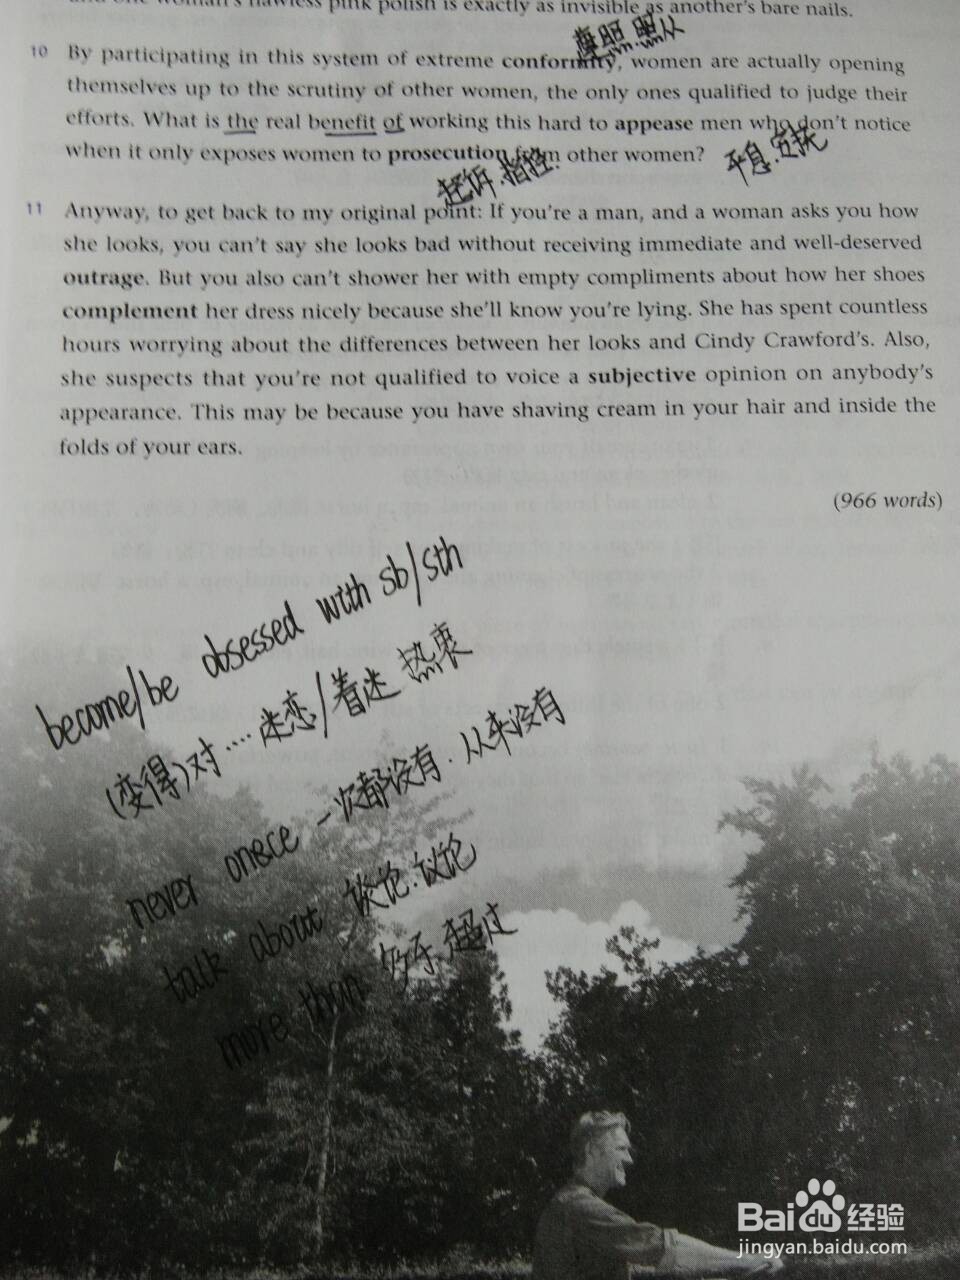 and one woman's flawless pink polish is exactly as invisible as another's bare nails.
遵照.照从
10 By participating in this system of extreme conformity, women are actually opening
themselves up to the scrutiny of other women, the only ones qualified to judge their
efforts. What is the real benefit of working this hard to appease men who don't notice
when it only exposes women to prosecution from other women?
平息.安抚
起诉.指控.
11 Anyway, to get back to my original point: If you're a man, and a woman asks you how
she looks, you can't say she looks bad without receiving immediate and well-deserved
outrage. But you also can't shower her with empty compliments about how her shoes
complement her dress nicely because she'll know you're lying. She has spent countless
hours worrying about the differences between her looks and Cindy Crawford's. Also,
she suspects that you're not qualified to voice a subjective opinion on anybody's
appearance. This may be because you have shaving cream in your hair and inside the
folds of your ears.
(966 words)
become/be obsessed with sb/sth
(变得)对....迷恋/着迷 热衷
never once 一次都没有.从来没有
talk about 谈论.议论
more than 多于.超过
Baidu 经验
jingyan.baidu.com